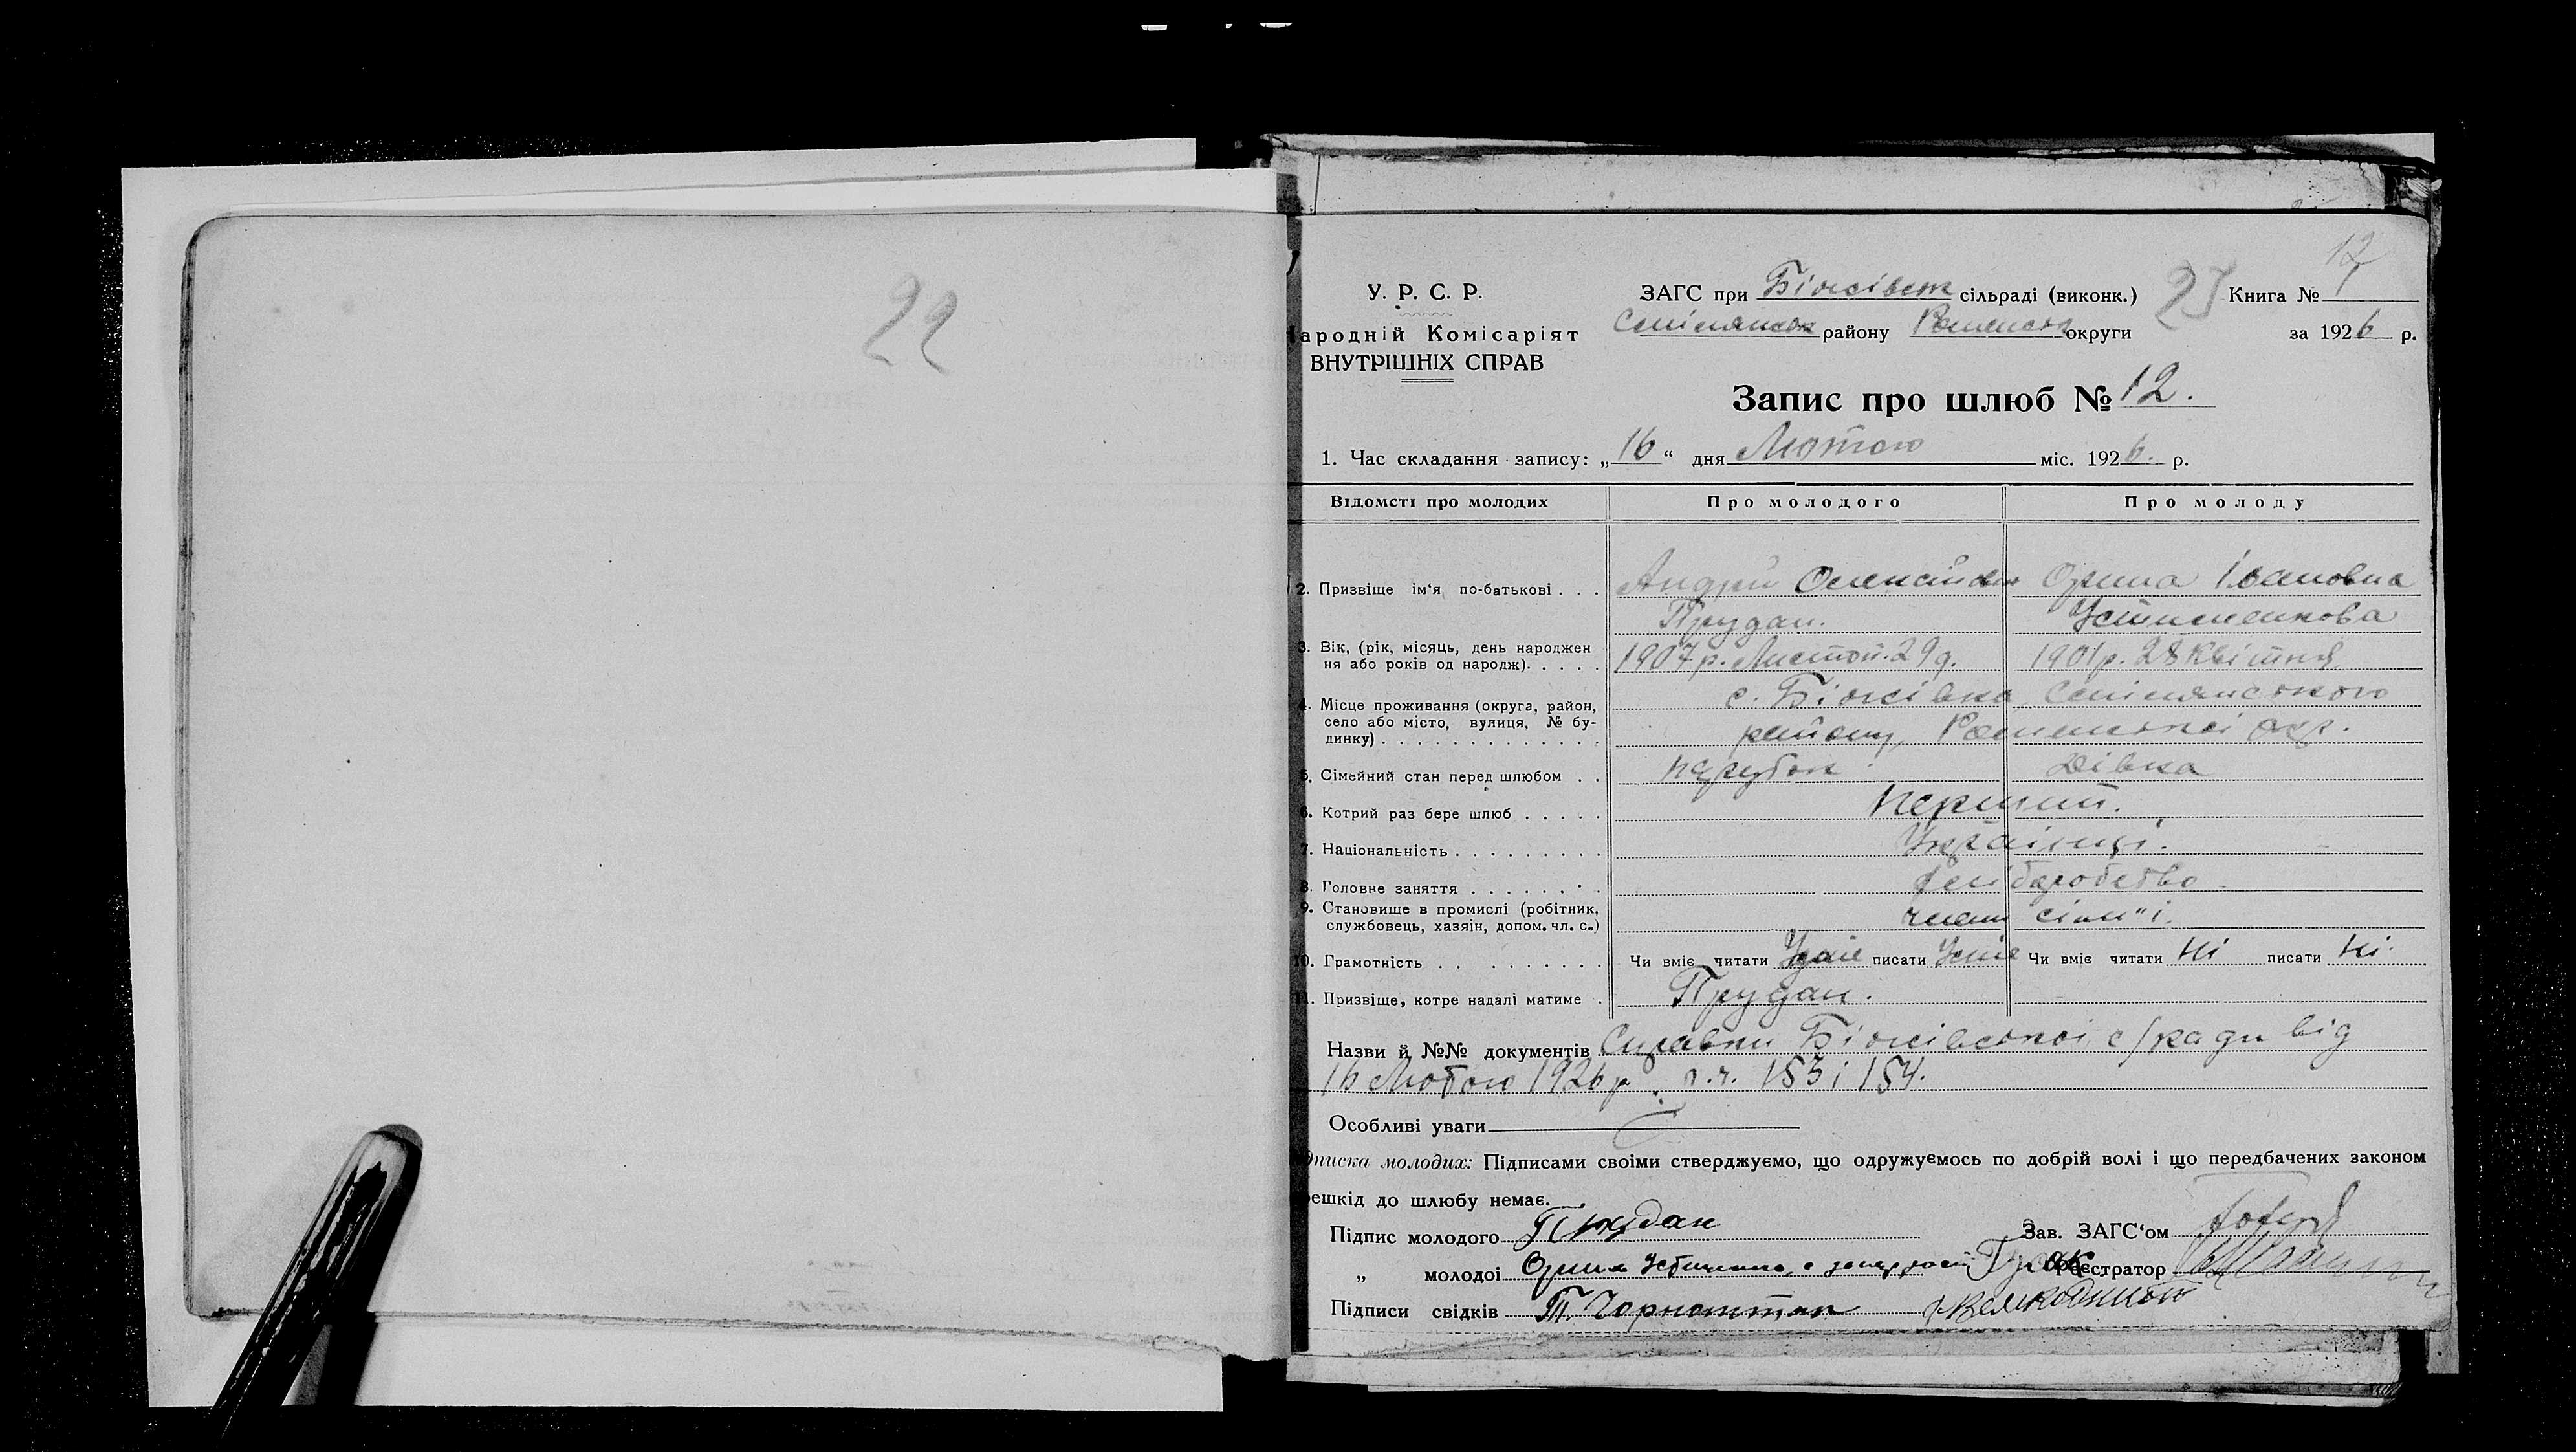 22
12
У. Р. С. Р.
ЗАГС при Біжівськ сільраді (виконк.) 23 Книга № 1
Народній Комісаріят
Смілянськ району Роменськ округи за 1926 р.
ВНУТРІШНІХ СПРАВ
Запис про шлюб № 12.
1. Час складання запису: „16“ дня Лютого міс. 1926. р.
Відомсті про молодих Про молодого Про молоду
2. Призвіще ім‘я по-батькові . . . Андрій Олексійов Орина Івановна
Прудан. Устименкова
3. Вік, (рік, місяць, день народжен
ня або років од народж). . . . . 1907 р. Листоп. 29 д. 1901 р. 28 Квітня
4. Місце проживання (округа, район, с. Біжівка, Смілянського
село або місто, вулиця, № бу-
динку) . . . . . . . . . . . . . району, Роменської окр.
5. Сімейний стан перед шлюбом . . парубок Дівка
6. Котрий раз бере шлюб . . . . . Перший.
7. Національність . . . . . . . . . Українці.
8. Головне заняття . . . . . . . . хліборобство
9. Становище в промислі (робітник,
службовець, хазяін, допом. чл. с.) члени сім"ї.
10. Грамотність . . . . . . . . . Чи вміє читати Уміє писати Уміє Чи вміє читати Ні писати Ні.
11. Призвіще, котре надалі матиме . Прудан.
Назви й №№ документів Справки Біжівської с/ради від
16 Лютого 1926 р. ч.ч. 153 і 154.
Особливі уваги
дписка молодих: Підписами своіми стверджуємо, що одружуємось по добрій волі і що передбачених законом
решкід до шлюбу немає.
Підпис молодого Прудан Зав. ЗАГС‘ом
„ молодоі Орина Реєстратор
Підписи свідків П. Чорноштан